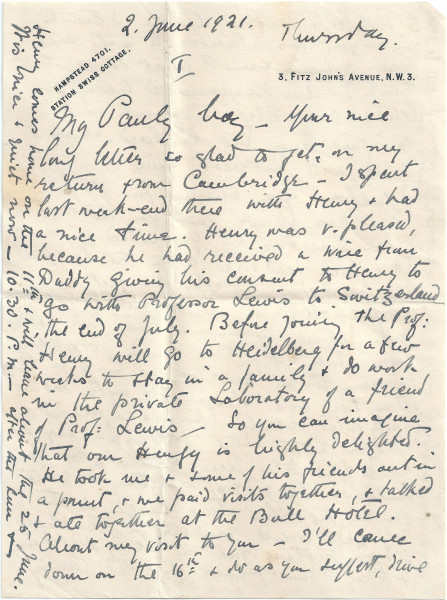 2. June 1921. Thursday.
HAMPSTEAD 4701.
STATION SWISS COTTAGE.
I
3, FITZ JOHN'S AVENUE, N.W.3.
My Pauly boy – Your nice
long letter so glad to get, on my
return from Cambridge – I spent
last week-end there with Henry & had
a nice time. Henry was v. pleased,
because he had received a wire from
Daddy giving his consent to Henry to
go with Professor Lewis to Switzerland
the end of July. Before joining the Prof:
Henry will go to Heidelberg for a few
weeks to stay in a family & do work
in the private Laboratory of a friend
of Prof: Lewis – So you can imagine
that our Henry is highly delighted.
He took me & some of his friends out in
a punt, & we paid visits together, & talked
& ate together at the Bull Hotel.
About my visit to you – I'll come
down on the 16th & do as you suggest, drive
Henry comes home on the 11th & will leave about the 25 June.
nice & quiet now – 10.30. P.M. – after the